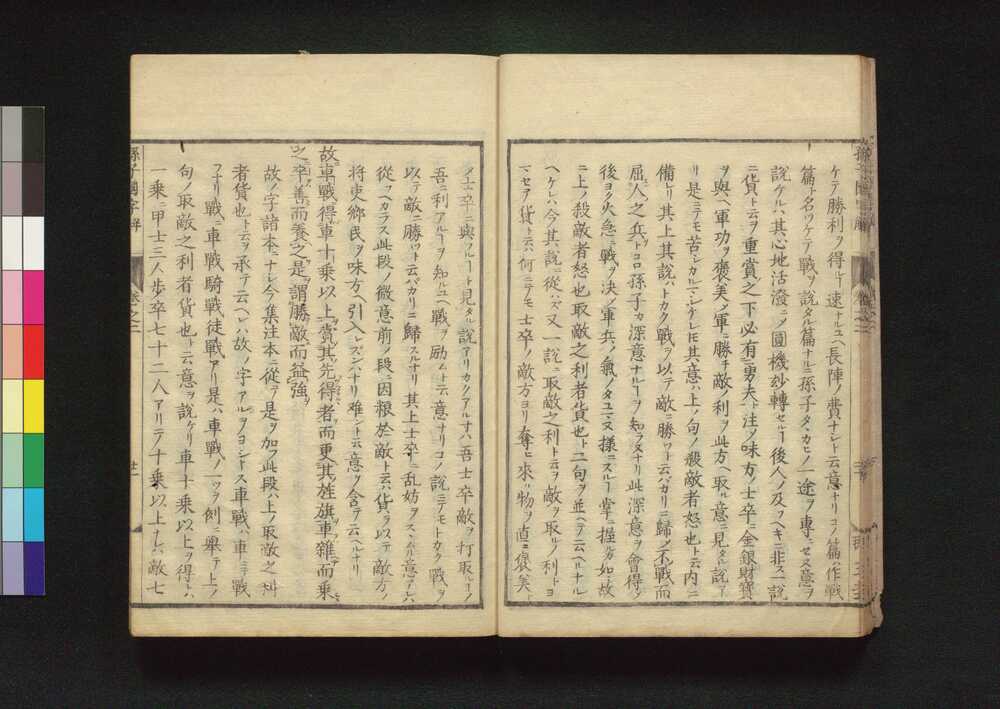 ケテ勝利ヲ得ルヿ速ナルユヘ長陣ノ費ナシト云意ナリコノ篇ハ作戰
篇ト名ツケテ戰ヲ說タル篇ナルニ孫子タヽカヒノ一途ヲ專ニセヌ意ヲ
說ケルハ其心地活潑ニメ圓機妙轉セルヿ後人ノ及フヘキニ非ス一說
ニ貨ト云ヲ重賞之下必有勇夫ト注メ味方ノ士卒ニ金銀財寶
ヲ與ヘ軍功ヲ褒美メ軍ニ勝チ敵ノ利ヲ此方ヘ取ル意ニ見タル說ア
リ是ニテモ苦シカルマシケレ𪜈其意ハ上ノ句ノ殺敵者怒也ト云内ニ
備レリ其上其說ハトカク戰ヲ以テ敵ニ勝ヿト云バカリニ歸メ不戰而
屈人之兵トコロ孫子カ深意ナルヿヲ知ラヌナリ此深意ヲ會得メ
後ヨク火急ニ戰ヲ決メ軍兵ノ氣ノタユマヌ樣ニスルヿ掌ニ握カ如故
ニ上ノ殺敵者怒也取敵之利者貨也ト二句ヲ並ヘテ云ヘルナル
ヘケレハ今其說ニ從ハズ又一說ニ取敵之利ト云ヲ敵ヲ取ルノ利トヨ
マセアリ貨ト云ハ何ニテモ士卒ノ敵方ヨリ奪ヒ來ル物ヲ直ニ褒美ト
メ士卒ニ與フルヿト見タル說アリカクアルナハ吾士卒敵ヲ打取ルヿノ
吾ニ利アルヿヲ知ルユヘ戰ヲ勵ムト云意ナリコノ說ニテモトカク戰ヲ
以テ敵ニ勝ヿト云バカリニ歸スルナリ其上士卒ニ乱妨ヲスヽムル意ナレハ
從フヘカラス此段ノ微意前ノ段ニ因粮於敵ト云ハ貨ヲ以テ敵方ノ
將吏鄕民ヲ味方ヘ引入レズンハナリ難シト云意ヲ含テ云ヘルナリ
故車戰得車十乘以上賞其先得者而更其旌旗車雜而乘
之卒善而養之是謂勝敵而益強
故ノ字諸本ニナシ今集注本ニ從テ是ヲ加フ此段ハ上ノ取敵之利
者貨也ト云ヲ承テ云ヘレハ故ノ字アルヲヨシトス車戰ハ車ニテ戰
フナリ戰ニ車戰騎戰徒戰アリ是ハ車戰ノ一ツヲ例ニ擧テ上ノ
句ノ取敵之利者貨也ト云意ヲ說ケリ車十乘以上ヲ得レハ
一乘ニ甲士三人步卒七十二人アリテ十乘以上ナレハ敵七
孫子國字解
卷之二
廿一